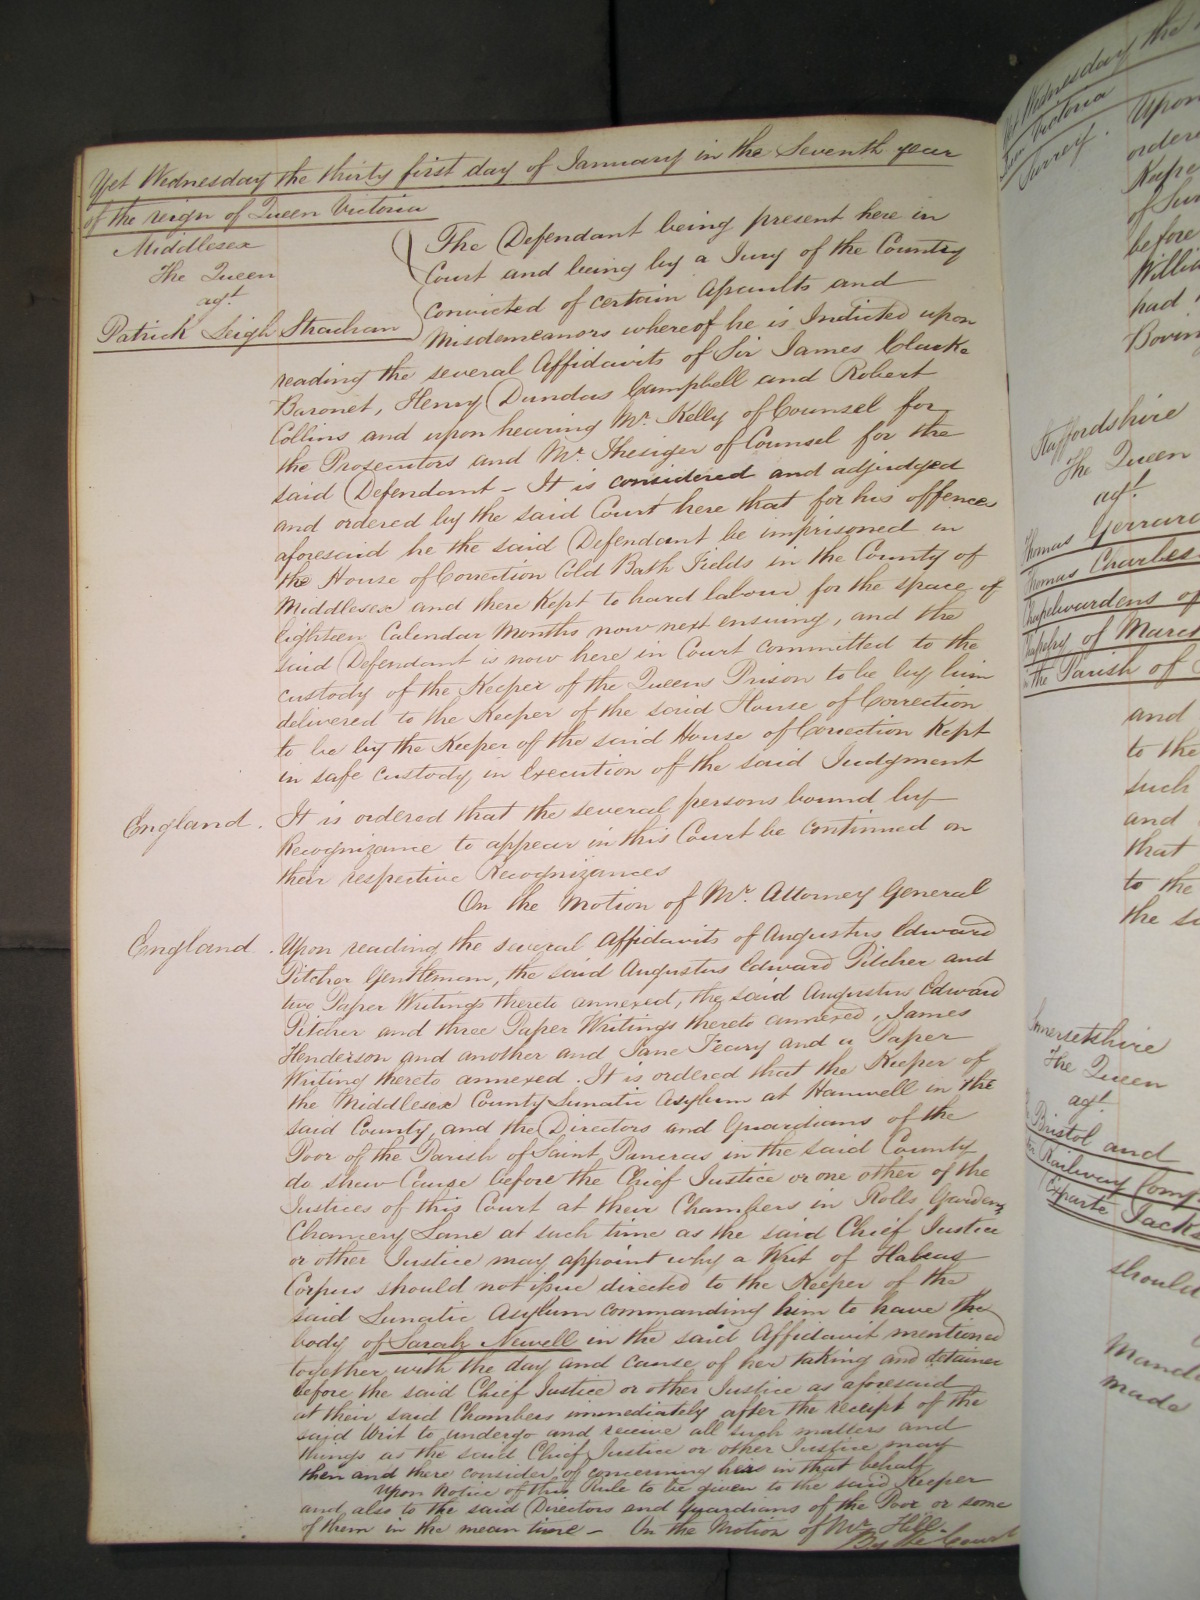 Yet Wednesday the thirty first day of January in the Seventh year
of the reign of Queen Victoria
Middlesex
The Queen
agt
Patrick Leigh Strachan
The Defendant being present here in
Court and being by a Jury of the Country
convicted of certain Assaults and
Misdemeanors whereof he is Indicted upon
reading the several Affidavits of Sir James Clarke
Baronet, Henry Dundas Campbell and Robert
Collins and upon hearing Mr. Kelly of Counsel for
the Prosecutors and Mr. Thesiger of Counsel for the
said Defendant – It is considered and adjudged
and ordered by the said Court here that for his offences
aforesaid he the said Defendant be imprisoned in
the House of Correction Cold Bath Fields in the County of
Middlesex and there Kept to hard labour for the space of
Eighteen Calendar Months now next ensuing, and the
said Defendant is now here in Court committed to the
custody of the Keeper of the Queens Prison to be by him
delivered to the Keeper of the said House of Correction
to be by the Keeper of the said House of Correction Kept
in safe custody in Execution of the said Judgment
England. It is ordered that the several persons bound by
Recognizance to appear in this Court be continued on
their respective Recognizances
On the Motion of Mr. Attorney General
England. Upon reading the several Affidavits of Augustus Edward
Pitcher Gentleman, the said Augustus Edward Pitcher and
two Paper Writings thereto annexed, the said Augustus Edward
Pitcher and three Paper Writings thereto annexed, James
Henderson and another and Jane Feary and a Paper
Writing thereto annexed. It is ordered that the Keeper of
the Middlesex County Lunatic Asylum at Hanwell in the
said County, and the Directors and Guardians of the
Poor of the Parish of Saint Pancras in the said County
do shew Cause before the Chief Justice or one other of the
Justices of this Court at their Chambers in Rolls Gardens
Chancery Lane at such time as the said Chief Justice
or other Justice may appoint why a Writ of Habeas
Corpus should not issue directed to the Keeper of the
said Lunatic Asylum commanding him to have the
body of Sarah Newell in the said Affidavit mentioned
together with the day and cause of her taking and detainer
before the said Chief Justice or other Justice as aforesaid
at their said Chambers immediately after the receipt of the
said Writ to undergo and receive all such matters and
things as the said Chief Justice or other Justice may
then and there consider of concerning her in that behalf
Upon Notice of this Rule to be given to the said Keeper
and also to the said Directors and Guardians of the Poor or some
of them in the mean time – On the Motion of Mr. Hill.
By the Court
Yet Wednesday the
Victoria
Surrey.
Upon
ordere
of Sur
before
Willia
had
Bovin
Staffordshire
The Queen
agt
Thomas Gerrard
Thomas Charles
Chapelwardens of
of March
in the Parish of
and
to the
such
and
that
to the
the
Somersetshire
The Queen
agt
Bristol and
Railway Comp
Exparte Jacks
should
Manda
made